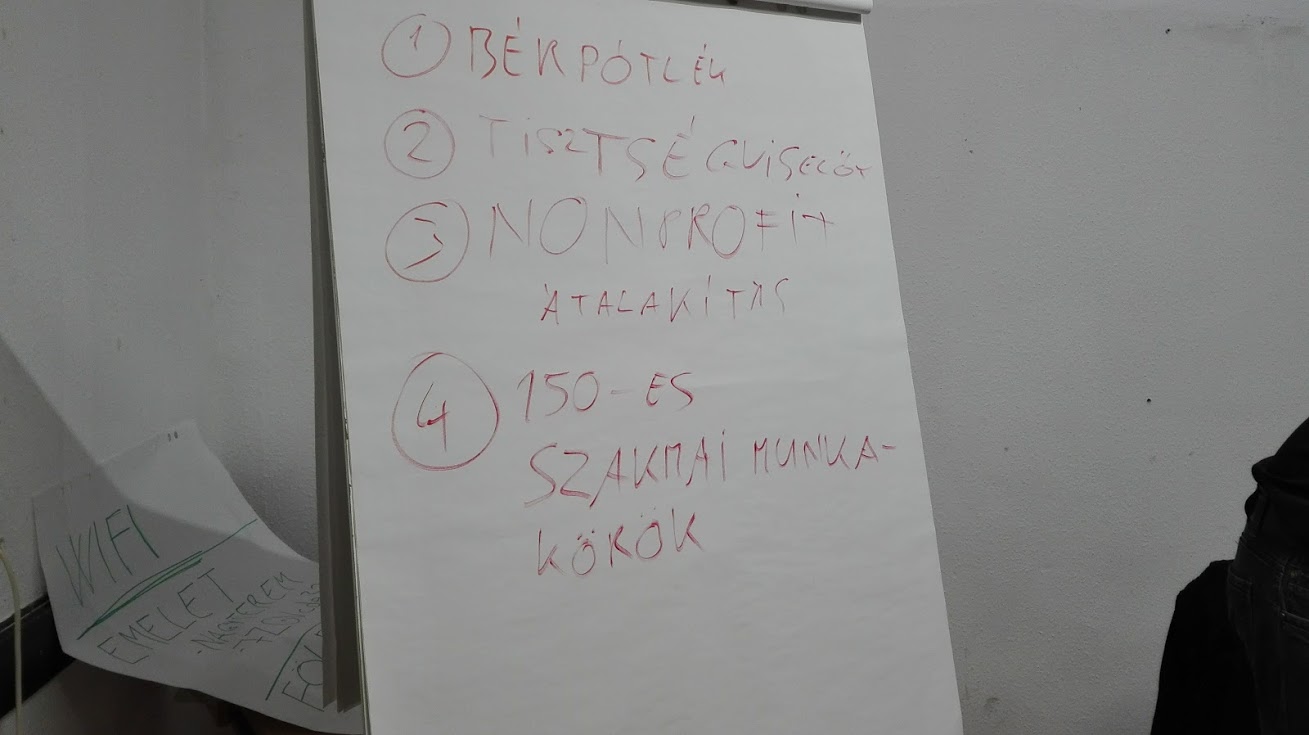 1 BÉRPÓTLÉK
2 TISZTSÉGVISELŐK
3 NONPROFIT
ÁTALAKÍTÁS
4 150-ES
SZAKMAI MUNKA-
KÖRÖK
WIFI
EMELET
-NAGYTEREM